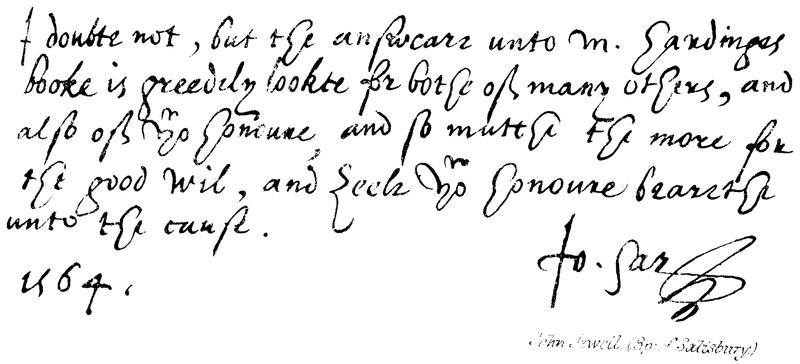 I doubte not, but the answeare unto M. Hardinges
booke is greedily lookte for bothe of many others, and
also of yor honoure, and so mutche the more for
the good wil, and zeele yor honoure bearethe
unto the cause.
1564.
Jo. Sar
John Jewell, (Bp. of Salisbury)